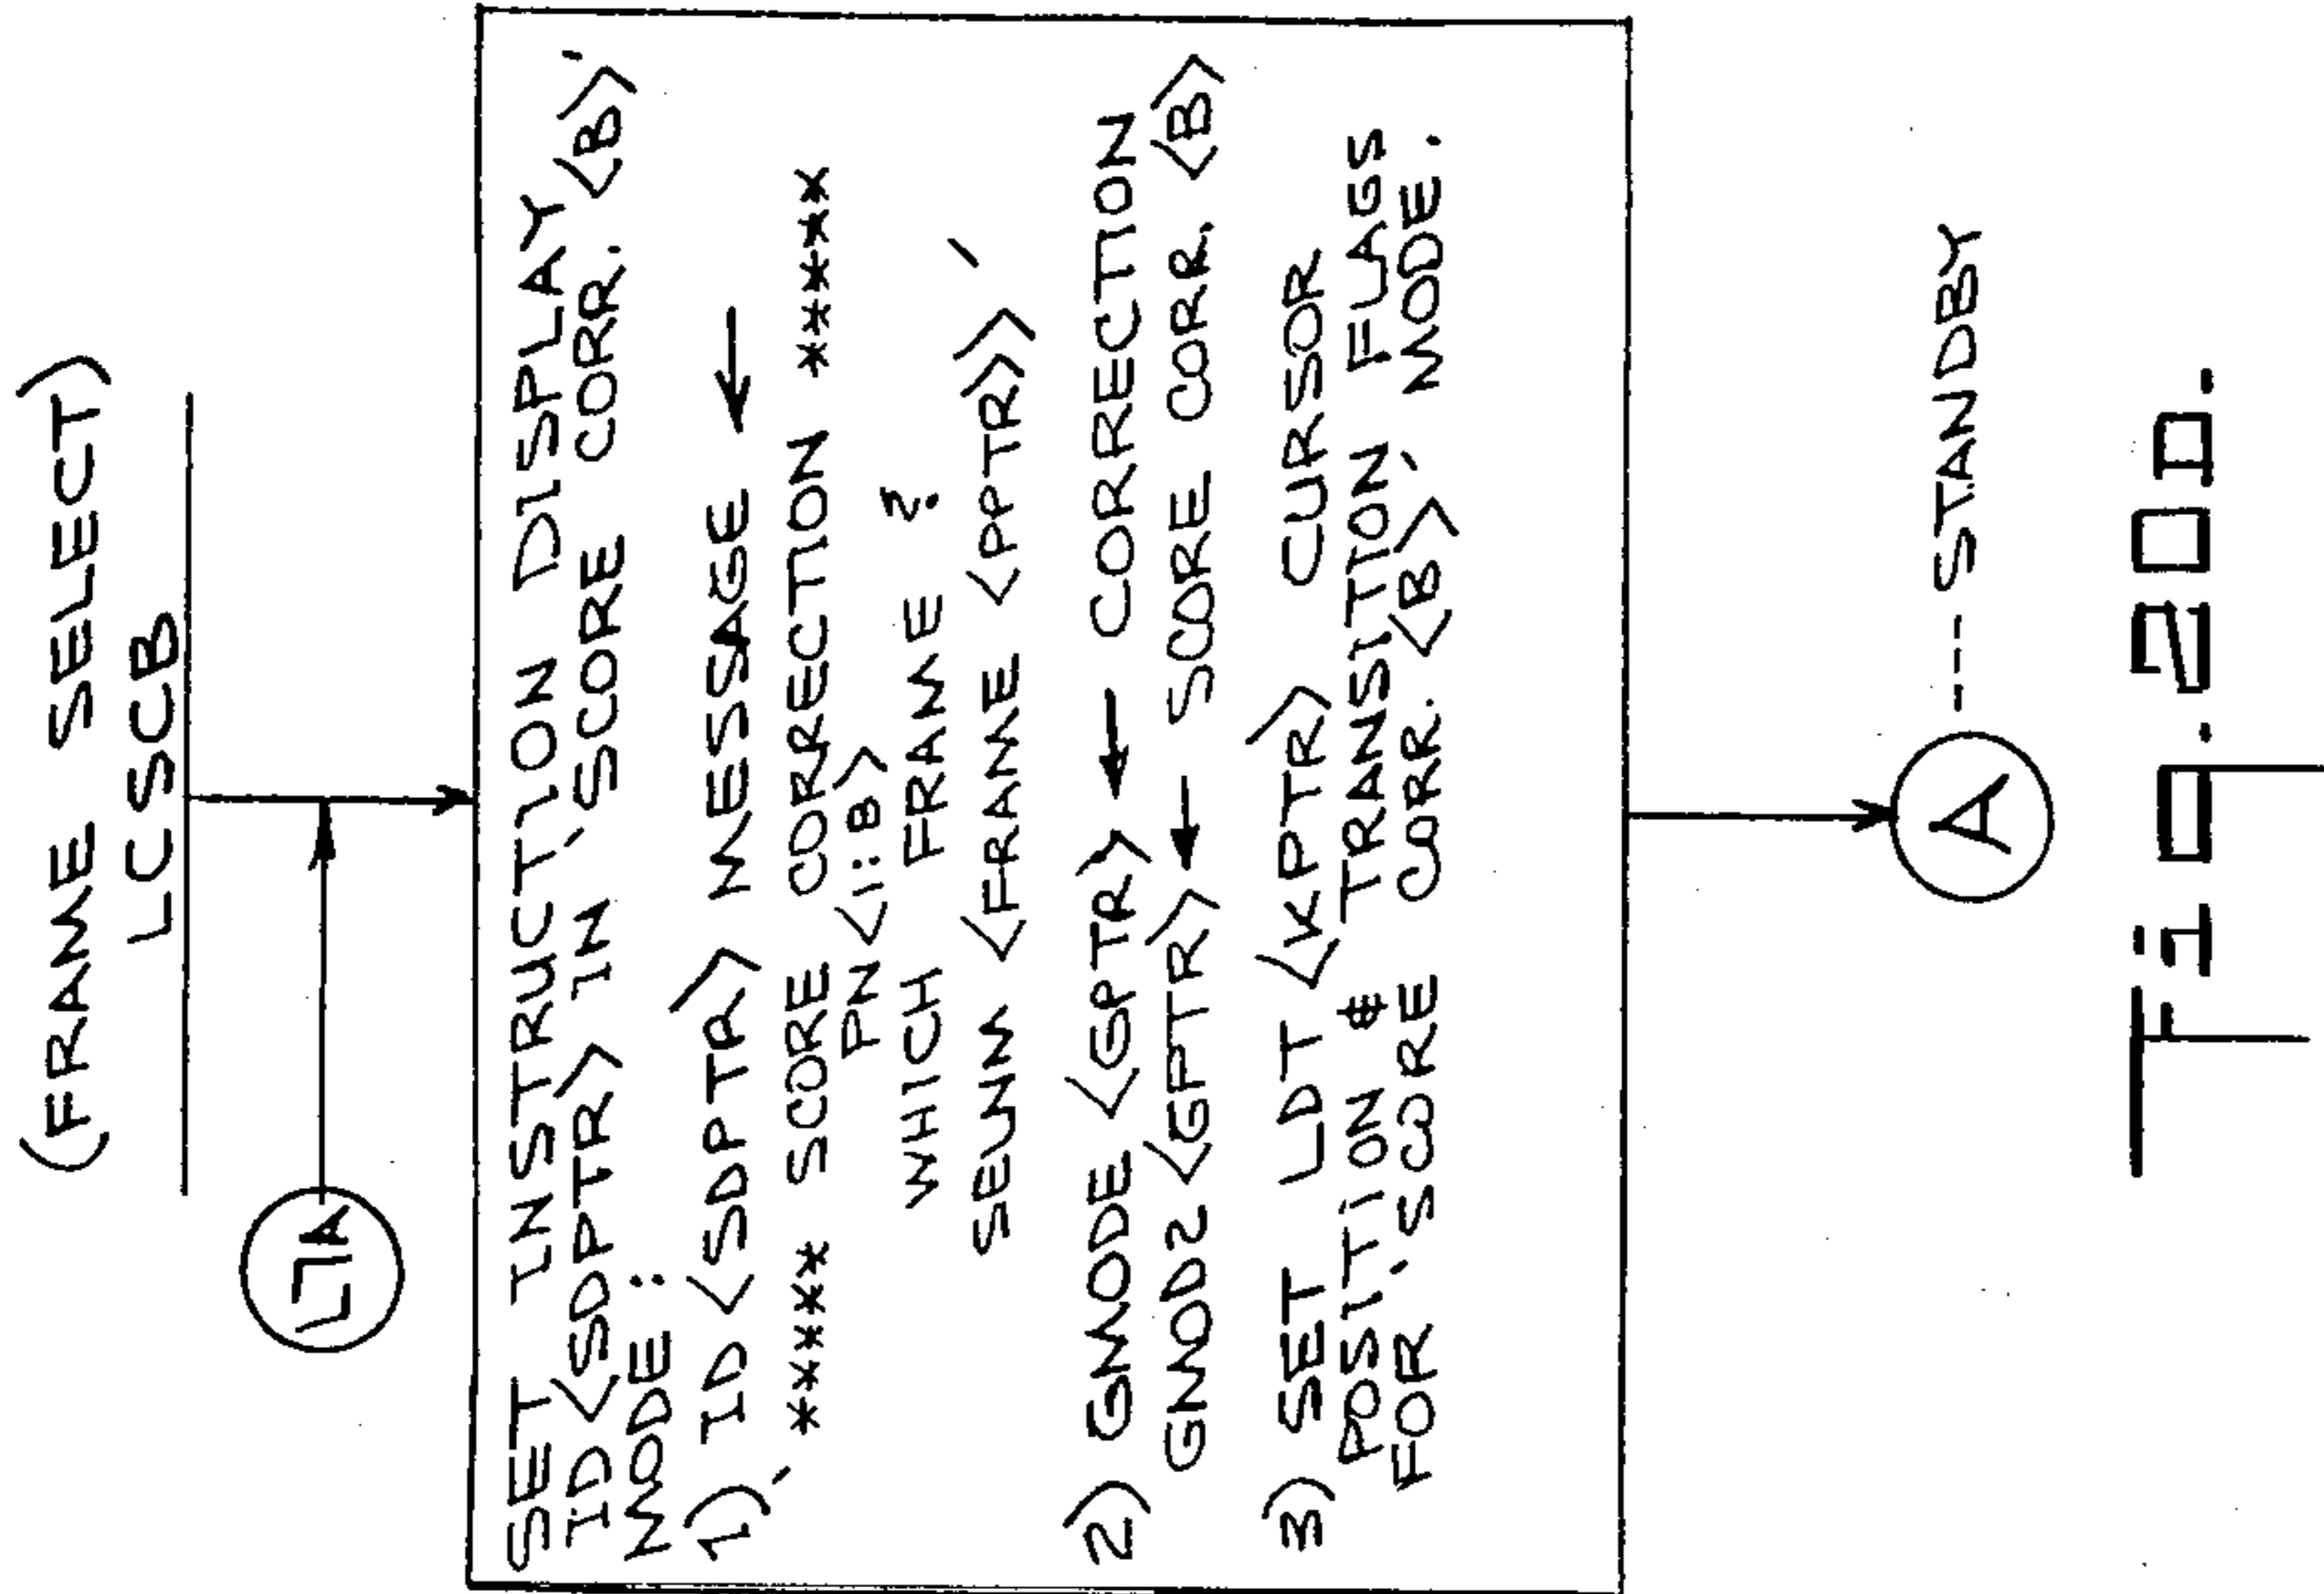 (FRAME SELECT)
LCSCB
17A
SET INSTRUCTION DISPLAY
ID<SDPTR> IN 'SCORE CORR. <B>'
MODE:
1) ID<SDPTR> MESSAGE ←
'***** SCORE CORRECTION *****
PN<1:8>
WHICH FRAME ?
<FRAME<PPTR>>'
2) GMODE<GPTR> ← CORRECTION
GMOD2<GPTR> ← SCORE CORR. <B>
3) SET LDT<KPTR> CURSOR
POSITION & TRANSITION FLAGS
FOR 'SCORE CORR. <B>' MODE.
A --- STANDBY
Fig. 20D.